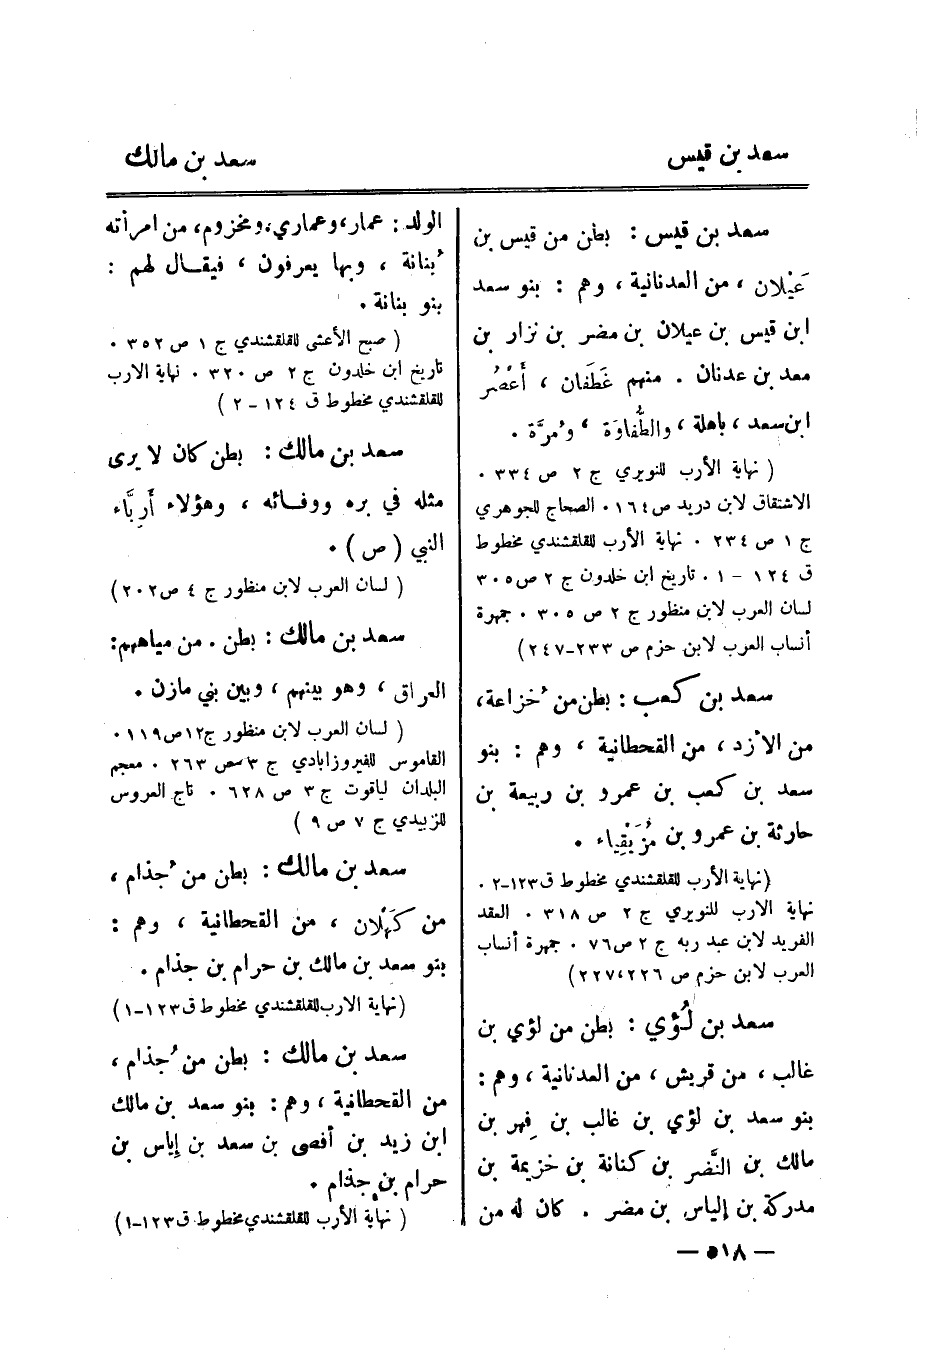 سعد بن قيس
سعد بن مالك
سعد بن قيس : بطن من قيس بن
عَيْلان ، من العدنانية ، وهم : بنو سعد
ابن قيس بن عيلان بن مضر بن نزار بن
معد بن عدنان . منهم غَطَفان ، أَعْصُر
ابن سعد ، باهلة ، والطُّفاوَة ، ومُرَّة .
( نهاية الأرب للنويري ج ٢ ص ٣٣٤ .
الاشتقاق لابن دريد ص ١٦٤ . الصحاح للجوهري
ج ١ ص ٢٣٤ . نهاية الأرب للقلقشندي مخطوط
ق ١٢٤ – ١ . تاريخ ابن خلدون ج ٢ ص ٣٠٥
لسان العرب لابن منظور ج ٢ ص ٣٠٥ . جمهرة
أنساب العرب لابن حزم ص ٢٣٣-٢٤٧)
سعد بن كعب : بطن من خُزاعة ،
من الأزد ، من القحطانية ، وهم : بنو
سعد بن كعب بن عمرو بن ربيعة بن
حارثة بن عمرو بن مُزَيْقِياء .
(نهاية الأرب للقلقشندي مخطوط ق ١٢٣-٢ .
نهاية الارب للنويري ج ٢ ص ٣١٨ . العقد
الفريد لابن عبد ربه ج ٢ ص ٧٦ . جمهرة أنساب
العرب لابن حزم ص ٢٢٦،٢٢٧)
سعد بن لُؤي : بطن من لؤي بن
غالب ، من قريش ، من العدنانية ، وهم :
بنو سعد بن لؤي بن غالب بن فِهر بن
مالك بن النَّضر بن كنانة بن خزيمة بن
مدركة بن إلياس بن مضر . كان له من
الولد : عمار ، وعماري ، ومخزوم ، من امرأته
بُنانة ، وبها يعرفون ، فيقال لهم :
بنو بنانة .
( صبح الأعشى للقلقشندي ج ١ ص ٣٥٢ .
تاريخ ابن خلدون ج ٢ ص ٣٢٠ . نهاية الارب
للقلقشندي مخطوط ق ١٢٤ – ٢ )
سعد بن مالك : بطن كان لا يرى
مثله في بره ووفائه ، وهؤلاء أَرِبَّاء
النبي ( ص ) .
( لسان العرب لابن منظور ج ٤ ص ٢٠٢)
سعد بن مالك : بطن . من مياههم :
العراق ، وهو بينهم ، وبين بني مازن .
( لسان العرب لابن منظور ج ١٢ ص ١١٩ .
القاموس للفيروزابادي ج ٣ ص ٢٦٣ . معجم
البلدان لياقوت ج ٣ ص ٦٢٨ . تاج العروس
للزبيدي ج ٧ ص ٩ )
سعد بن مالك : بطن من جُذام ،
من كَهْلان ، من القحطانية ، وهم :
بنو سعد بن مالك بن حرام بن جذام .
(نهاية الارب للقلقشندي مخطوط ق ١٢٣-١)
سعد بن مالك : بطن من جُذام ،
من القحطانية ، وهم : بنو سعد بن مالك
ابن زيد بن أفصى بن سعد بن إياس بن
حرام بن جذام .
( نهاية الأرب للقلقشندي مخطوط ق ١٢٣-١)
— ٥١٨ —